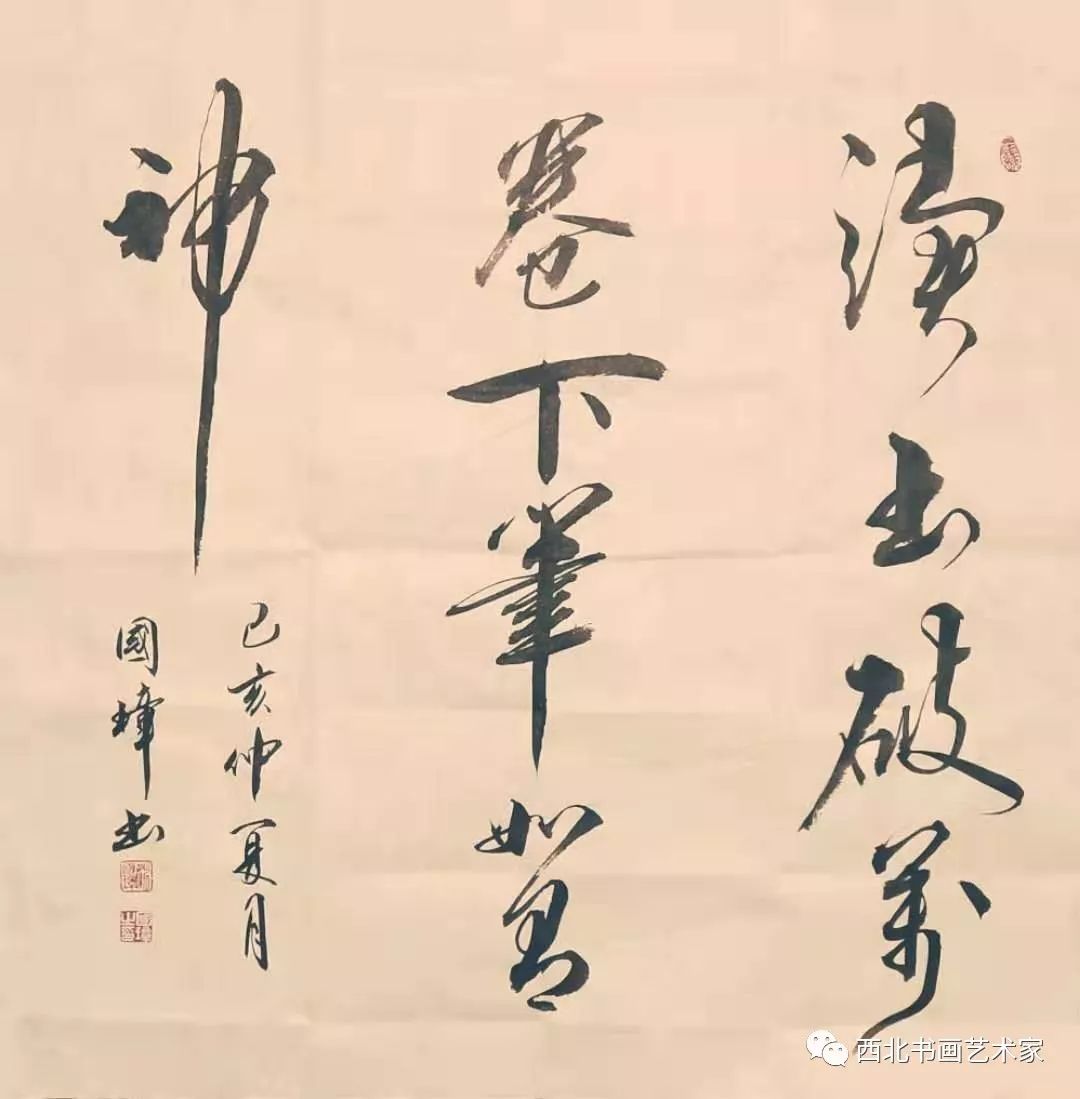 讀书破萬
卷下筆如有
神
己亥仲夏月
國璋书
西北书画艺术家